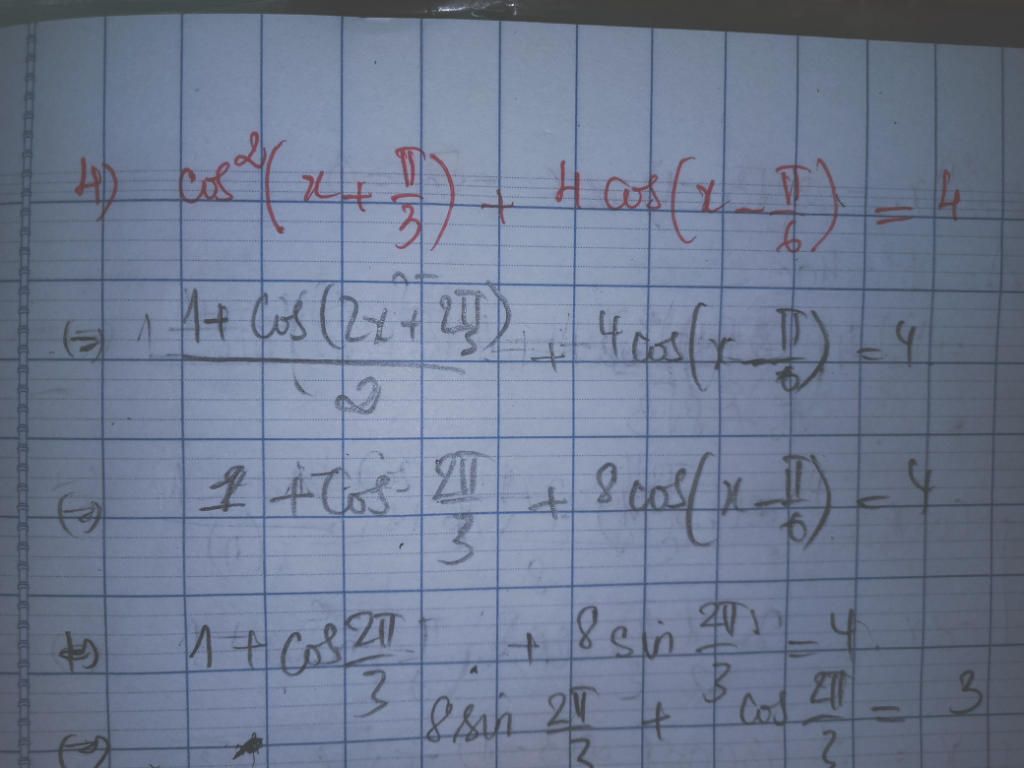 4) cos²(x + π/3) + 4 cos(x - π/6) = 4
(=) 1 + cos(2x + 2π/3) / 2 + 4cos(x - π/6) = 4
(=) 1 + cos 2π/3 + 8cos(x - π/6) = 4
(=) 1 + cos 2π/3 + 8 sin 2π/3 = 4
(=) 8 sin 2π/3 + cos 2π/3 = 3